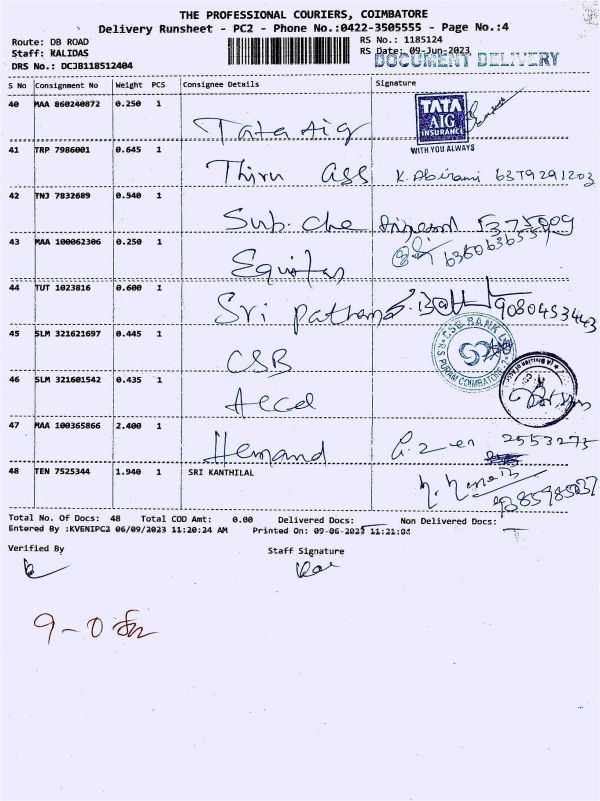 THE PROFESSIONAL COURIERS, COIMBATORE
Delivery Runsheet - PC2 - Phone No.:0422-3505555 - Page No.:4
Route: DB ROAD
RS No.: 1185124
Staff: KALIDAS
RS Date: 09-Jun-2023
DRS No.: DCJB118512404
DOCUMENT DELIVERY
S No Consignment No Weight PCS Consignee Details Signature
40 MAA 860240872 0.250 1 Tata Aig
TATA
AIG
INSURANCE
WITH YOU ALWAYS
41 TRP 7986001 0.645 1 Thiru Ass K. Abirami 6379291203
42 TNJ 7832689 0.540 1 Sub. Che
43 MAA 100062306 0.250 1 Equitas
44 TUT 1023816 0.600 1 Sri 9080453443
45 SLM 321621697 0.445 1 CSB
CSB BANK
R.S PURAM COIMBATORE
46 SLM 321601542 0.435 1
47 MAA 100365866 2.400 1 Hemand 2553275
48 TEN 7525344 1.940 1 SRI KANTHILAL
Total No. Of Docs: 48 Total COD Amt: 0.00 Delivered Docs: Non Delivered Docs:
Entered By :KVENIPC2 06/09/2023 11:20:24 AM Printed On: 09-06-2023 11:21:04
Verified By Staff Signature